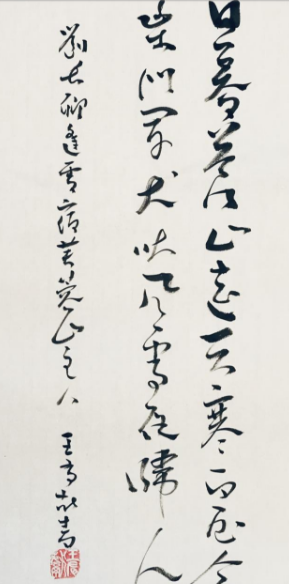 日暮蒼山遠天寒白屋貧
柴門聞犬吠風雪夜歸人
劉長卿逢雪宿芙蓉山主人 王